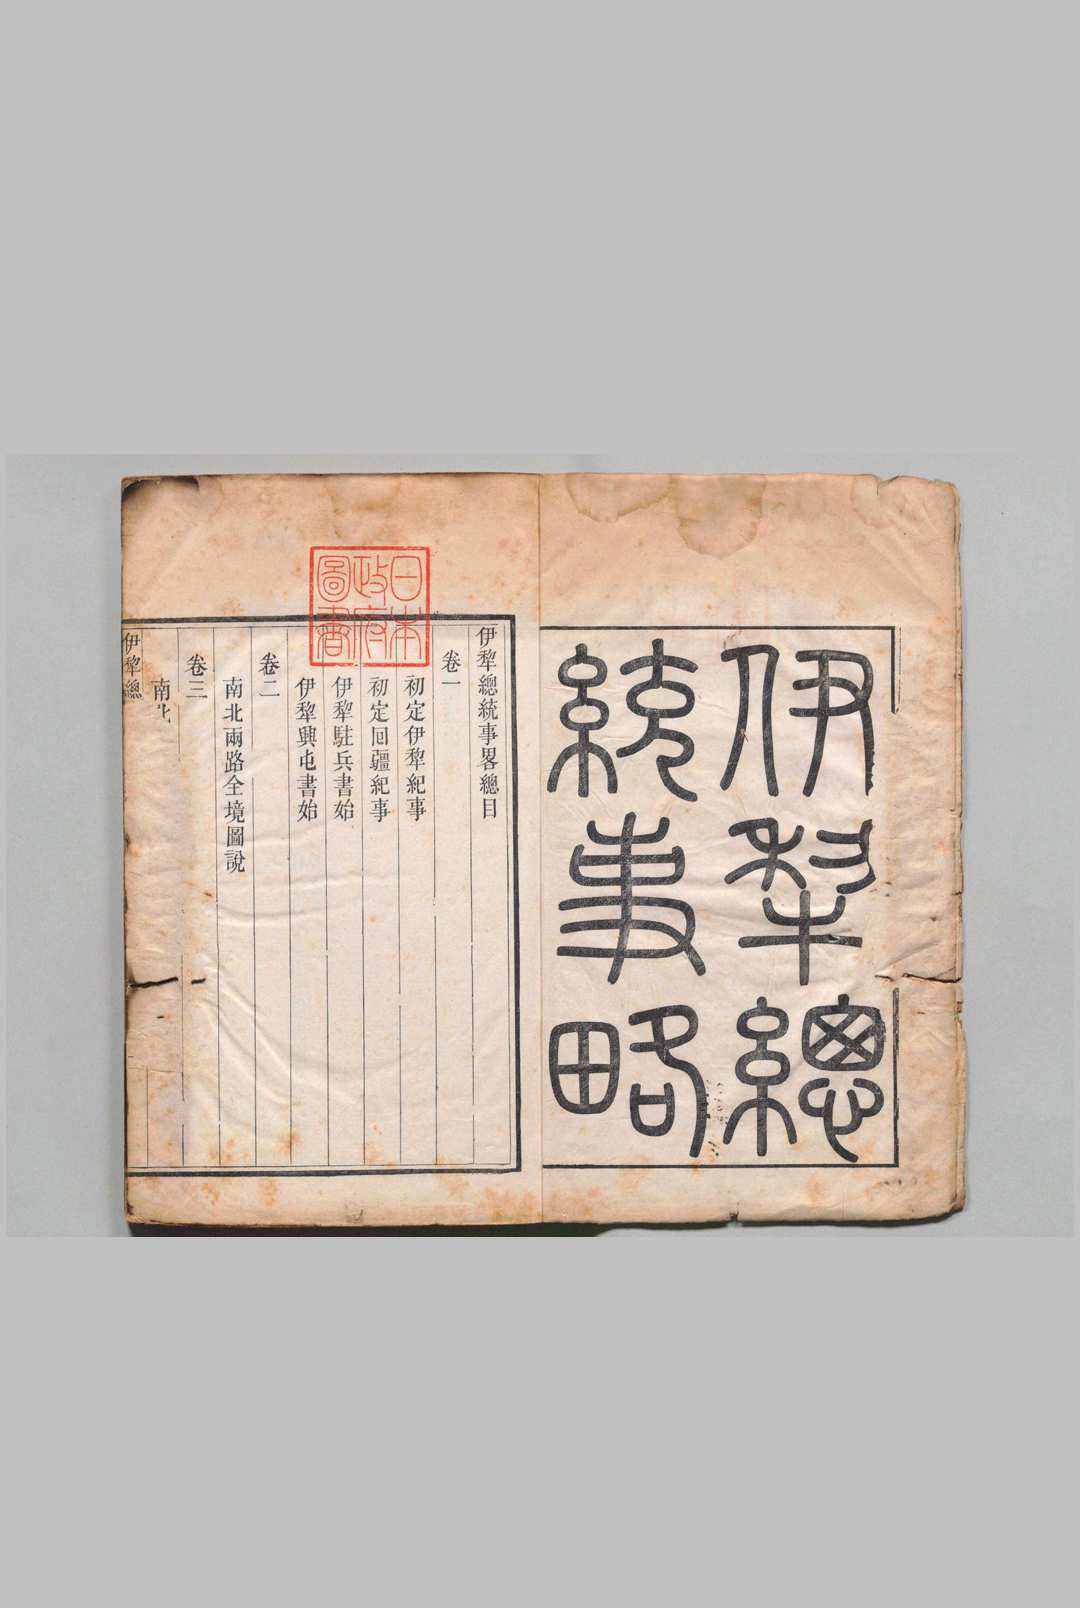 伊犂總
統事略
伊犂總統事畧總目
卷一
初定伊犂紀事
初定回疆紀事
伊犂駐兵書始
伊犂興屯書始
卷二
南北兩路全境圖說
卷三
南北
伊犂總
日本
政府
圖書